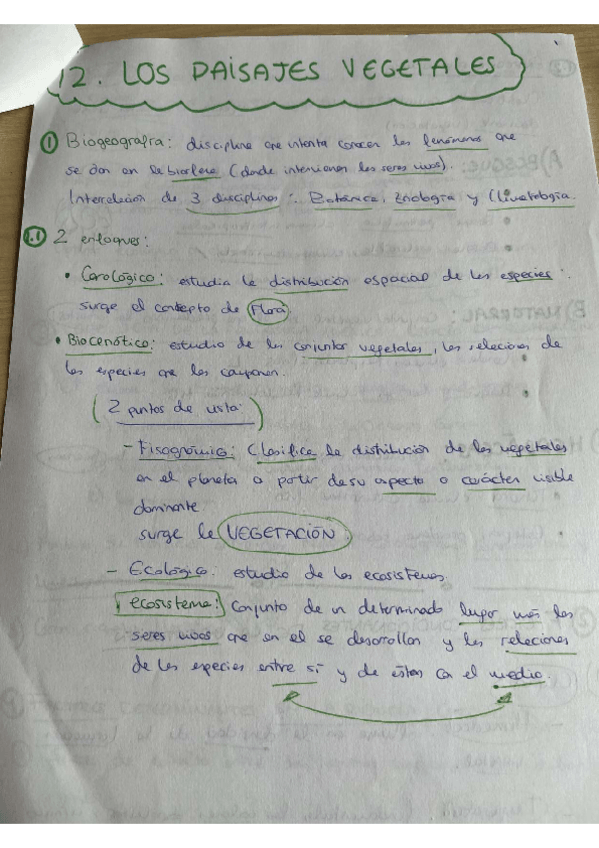 12. LOS PAISAJES VEGETALES
① Biogeografía: disciplina que intenta conocer los fenómenos que
se dan en la biosfera (donde intervienen los seres vivos).
Interrelación de 3 disciplinas: Botánica, Zoología y Climatología.
1.1 2 enfoques:
• Corológico: estudia la distribución espacial de las especies.
surge el concepto de Flora
• Biocenótico: estudio de los conjuntos vegetales, las relaciones de
las especies que los componen.
(2 puntos de vista:)
- Fisognómia: Clasifica la distribución de los vegetales
en el planeta a partir de su aspecto o carácter visible
dominante
surge la VEGETACIÓN.
- Ecológico: estudio de los ecosistemas
ecosistema: Conjunto de un determinado lugar más los
seres vivos que en el se desarrollan y las relaciones
de las especies entre sí y de éstas con el medio.